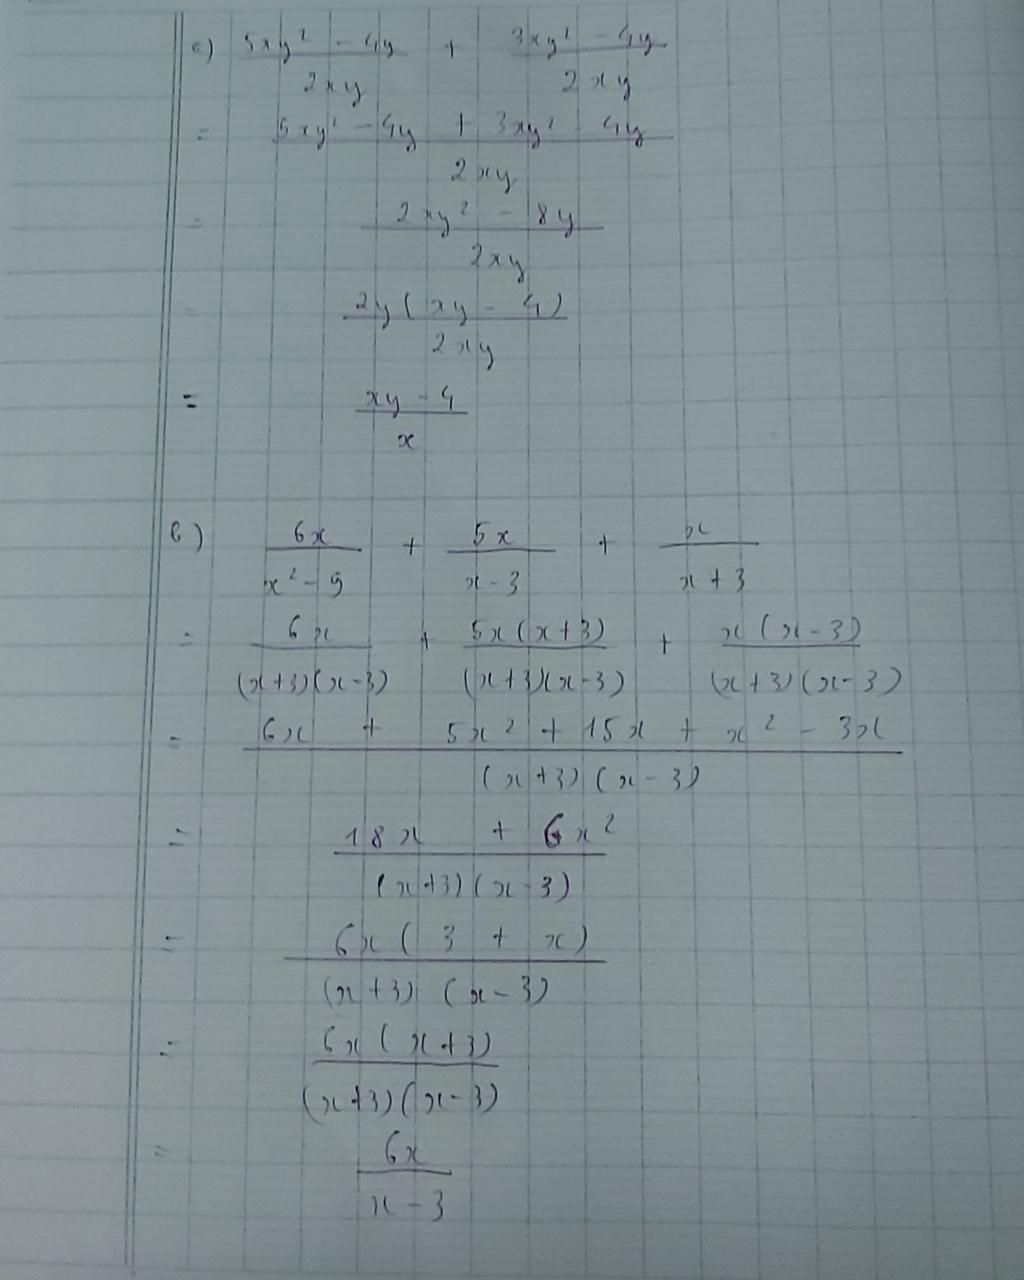 a) 5xy² - 4y / 2xy + 3xy² - 4y / 2xy
= 5xy² - 4y + 3xy² 4y / 2xy
= 2xy² - 8y / 2xy
= 2y(xy - 4) / 2xy
= xy - 4 / x
b) 6x / x² - 9 + 5x / x - 3 + x / x + 3
= 6x / (x+3)(x-3) + 5x(x+3) / (x+3)(x-3) + x(x-3) / (x+3)(x-3)
= 6x + 5x² + 15x + x² - 3x / (x+3)(x-3)
= 18x + 6x² / (x+3)(x-3)
= 6x(3 + x) / (x+3)(x-3)
= 6x(x+3) / (x+3)(x-3)
= 6x / x - 3